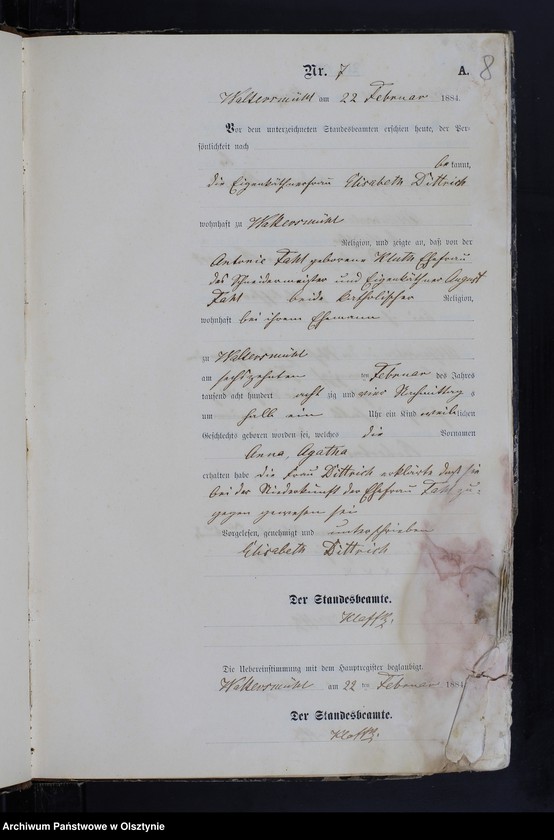 8
Nr. 7 A.
Waltersmühl am 22 Februar 1884.
Vor dem unterzeichneten Standesbeamten erschien heute, der Per-
sönlichkeit nach
bekannt,
die Eigenkäthnerfrau Elisabeth Dittrich
wohnhaft zu Waltersmühl
Religion, und zeigte an, daß von der
Antonie geborene Kluth Ehefrau
des Schneidermeister und Eigenkäthner August
beide katholischer Religion,
wohnhaft bei ihrem Ehemann
zu Waltersmühl
am sechszehnten ten Februar des Jahres
tausend acht hundert acht zig und vier Nachmittag s
um halb ein Uhr ein Kind weiblichen
Geschlechts geboren worden sei, welches die Vornamen
Anna, Agatha
erhalten habe die Frau Dittrich erklärte daß sie
bei der Niederkunft der Ehefrau zu-
gegen gewesen sei
Vorgelesen, genehmigt und unterschrieben
Elisabeth Dittrich
Der Standesbeamte.
Die Uebereinstimmung mit dem Hauptregister beglaubigt.
Waltersmühl am 22 ten Februar 1884
Der Standesbeamte.
Archiwum Państwowe w Olsztynie